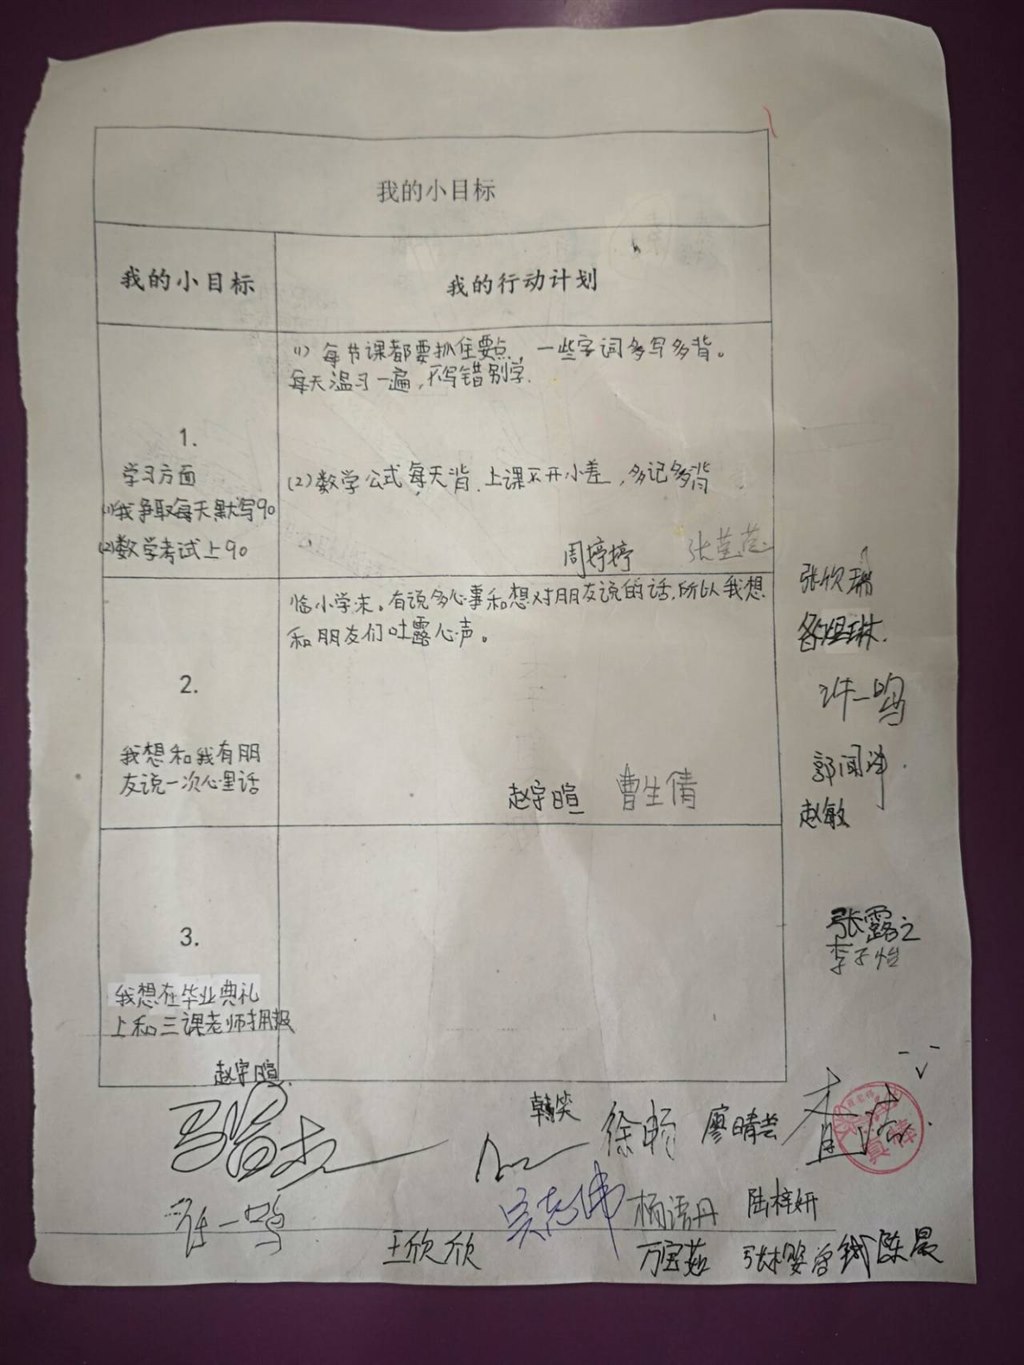 我的小目标
我的小目标
我的行动计划
(1) 每节课都要抓住要点，一些字词多写多背。
每天温习一遍，不写错别字.
1.
学习方面
(1)我争取每天默写90
(2)数学考试上90
(2)数学公式每天背.上课不开小差，多记多背
周婷婷
张莹莹
临小学末。有说多心事和想对朋友说的话，所以我想
和朋友们吐露心声。
2.
我想和我有朋
友说一次心里话
赵宇暄
曹生倩
张欣瑞
许一鸣
赵敏
张露之
李子怡
3.
我想在毕业典礼
上和三课老师拥报
赵宇暄
韩笑
徐畅
廖晴芸
许一鸣
王欣欣
吴志伟
杨语丹
陆梓妍
万宝茹
陈晨